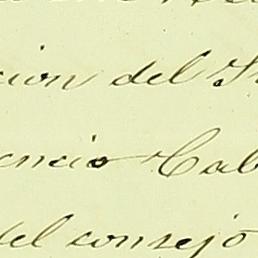 cion del
encio Cab
del consejo